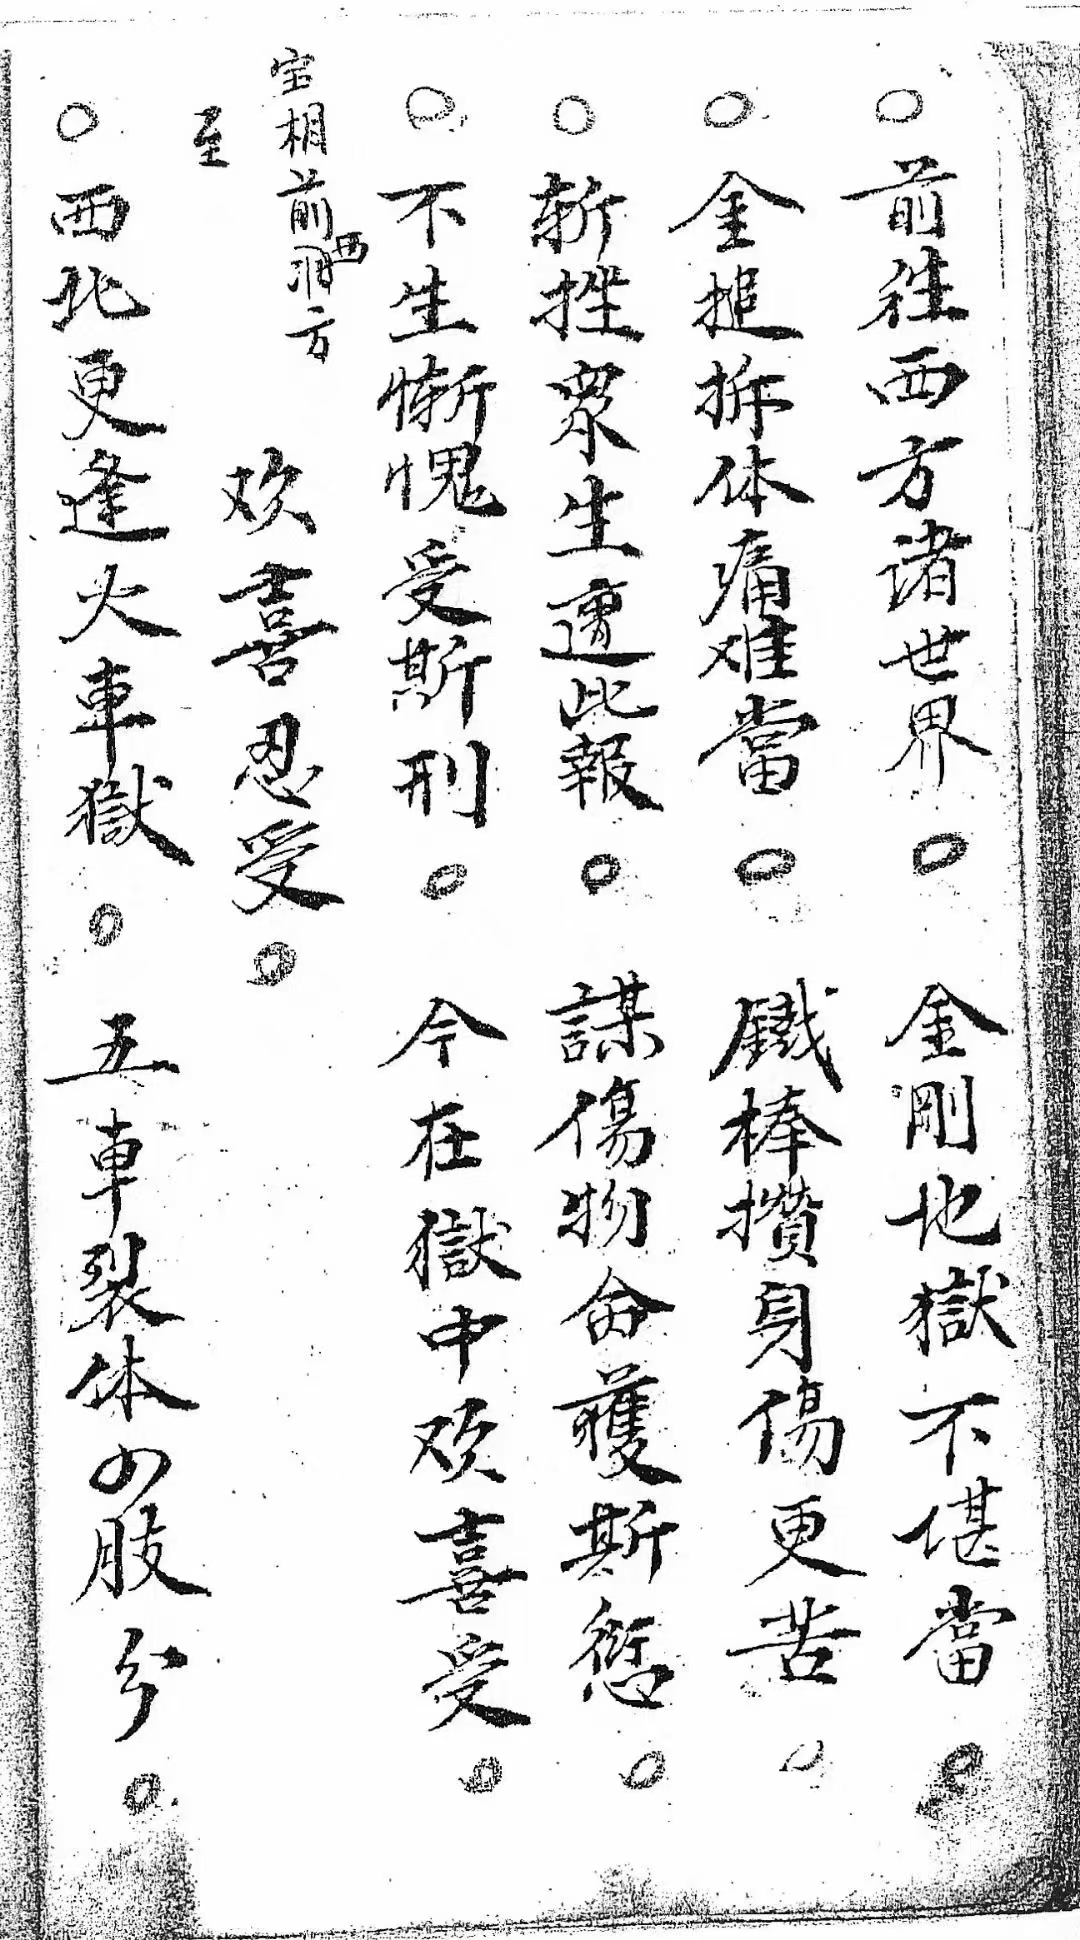 ○前往西方诸世界○金剛地獄不堪當○
○金搥拆体痛难當○鐵棒攢身傷更苦○
○斬挫衆生遭此報○謀傷物命獲斯愆○
○不生慚愧受斯刑○今在獄中欢喜受○
宝相前西方
至 欢喜忍受○
○西北更逢火車獄○五車裂体四肢分○